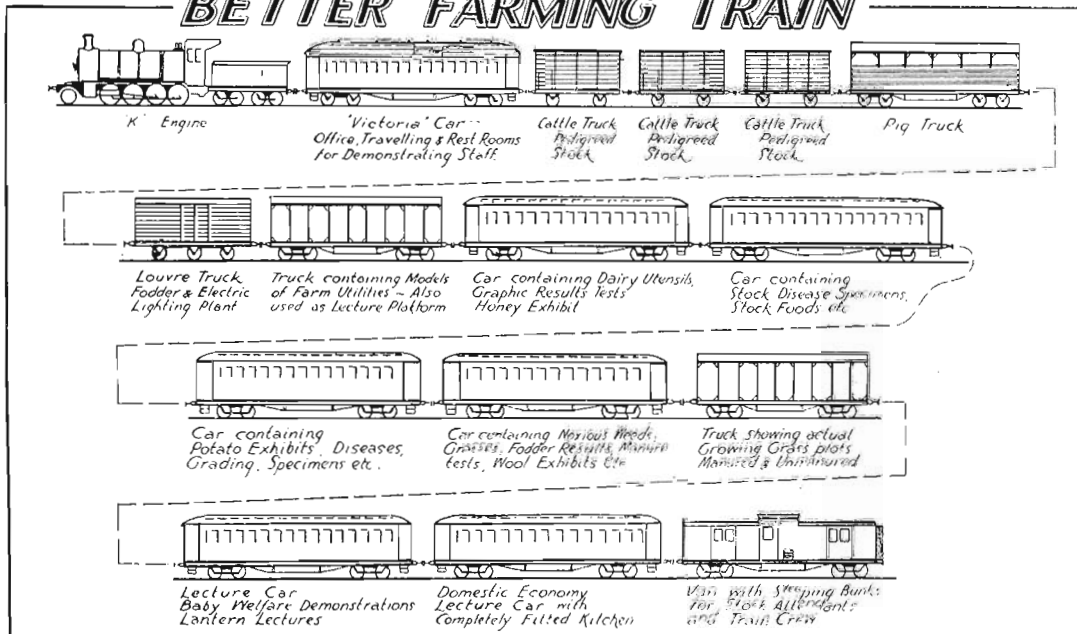 BETTER FARMING TRAIN
'K' Engine
'Victoria' Car --
Office, Travelling & Rest Rooms
for Demonstrating Staff.
Cattle Truck
Pedigreed
Stock
Cattle Truck
Pedigreed
Stock
Cattle Truck
Pedigreed
Stock
Pig Truck
Louvre Truck
Fodder & Electric
Lighting Plant
Truck containing Models
of Farm Utilities - Also
used as Lecture Platform
Car containing Dairy Utensils,
Graphic Results Tests
Honey Exhibit
Car containing
Stock Disease Specimens,
Stock Foods etc
Car containing
Potato Exhibits, Diseases,
Grading, Specimens etc.
Car containing Noxious Weeds,
Grasses, Fodder Results, Manure
tests, Wool Exhibits Etc
Truck showing actual
Growing Grass plots
Manured & Unmanured
Lecture Car
Baby Welfare Demonstrations
Lantern Lectures
Domestic Economy
Lecture Car with
Completely Fitted Kitchen
Van with Sleeping Bunks
for Stock Attendants
and Train Crew